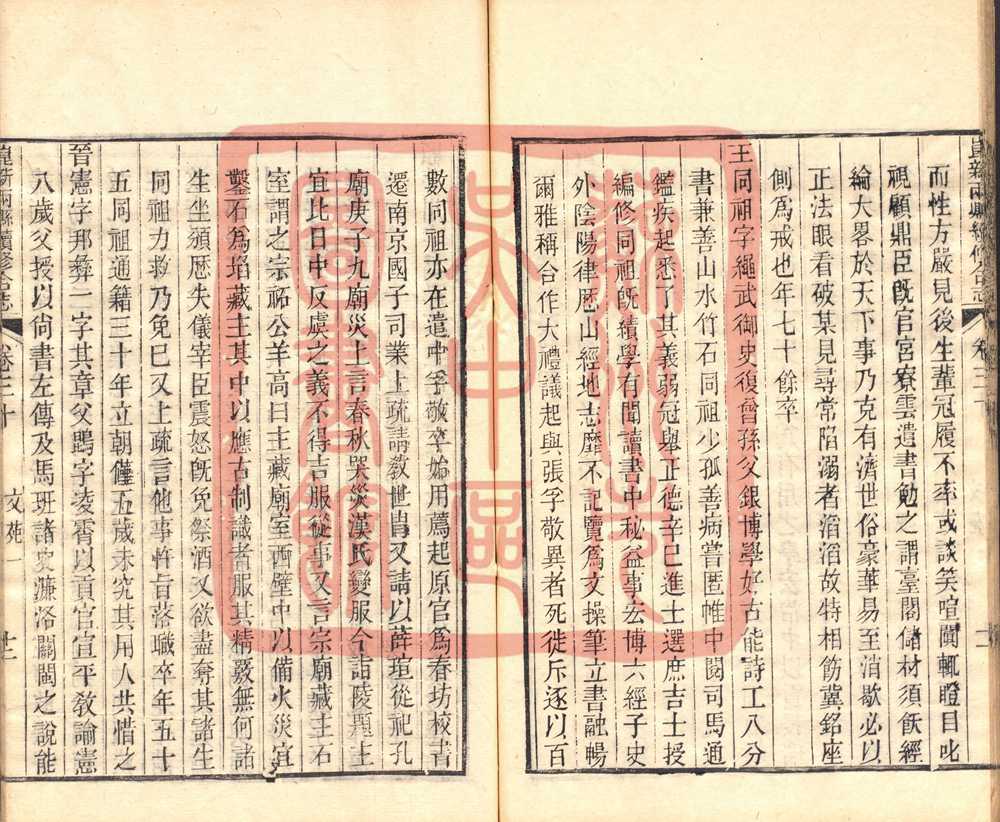 而性方嚴見後生輩冠履不率或談笑喧闐輒瞪目叱
視顧鼎臣旣官宮寮雲遺書勉之謂臺閣儲材須飫經
綸大畧於天下事乃克有濟世俗豪華易至消歇必以
正法眼看破某見尋常陷溺者滔滔故特相飭冀銘座
側爲戒也年七十餘卒
王同祖字繩武御史復曾孫父銀博學好古能詩工八分
書兼善山水竹石同祖少孤善病嘗匿帷中閱司馬通
鑑疾起悉了其義弱冠舉正德辛巳進士選庶吉士授
編修同祖旣績學有聞讀書中秘益事宏博六經子史
外陰陽律厯山經地志靡不記覽爲文操筆立書融暢
爾雅稱合作大禮議起與張孚敬異者死徙斥逐以百
數同祖亦在遣中孚敬卒始用薦起原官爲春坊校書
遷南京國子司業上疏請敎世胄又請以薛瑄從祀孔
廟庚子九廟災上言春秋哭災漢氏變服今詣陵題主
宜比日中反虞之義不得吉服從事又言宗廟藏主石
室謂之宗祏公羊高曰主藏廟室西壁中以備火災宜
鑿石爲埳藏主其中以應古制識者服其精覈無何諸
生坐頒厯失儀宰臣震怒旣免祭酒又欲盡奪其諸生
同祖力救乃免已又上疏言他事忤旨落職卒年五十
五同祖通籍三十年立朝僅五歲未究其用人共惜之
晉憲字那彝一字其章父鷃字凌霄以貢官宣平敎諭憲
八歲父授以尙書左傳及馬班諸史濂洛關閩之說能
崑新兩縣續修合志
卷三十
文苑一
蘇州市吳中區圖書館